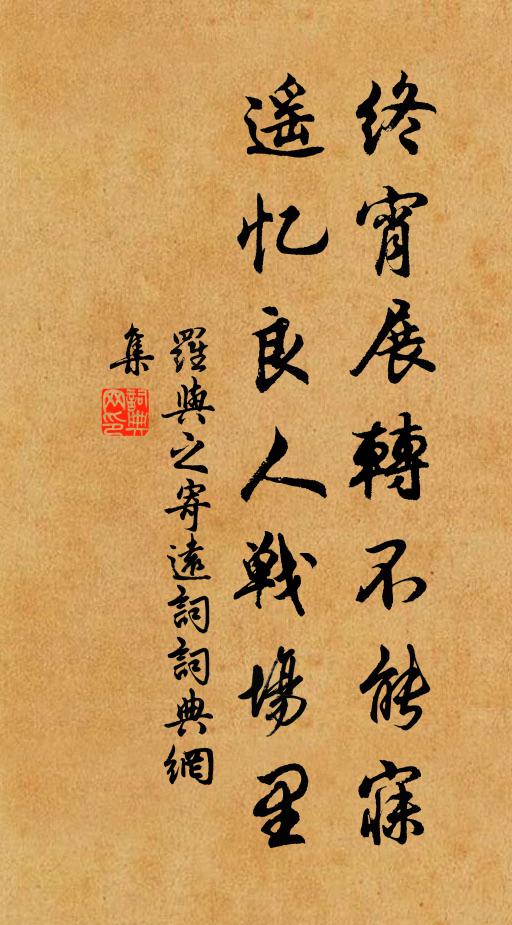 终宵展轉不能寐
遥忆良人戦場里
羅與之寄遠詞詞典網
集
詞典网印